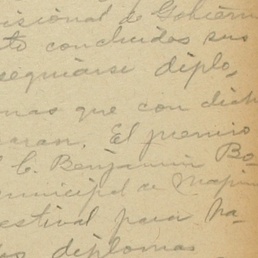 visional de Gobierno
to concluidos sus
seguirse diplo,
mas que con dich
aran. El premio
C. Benjamin Bo
municipal de Mapim
estival para ha
diplomas